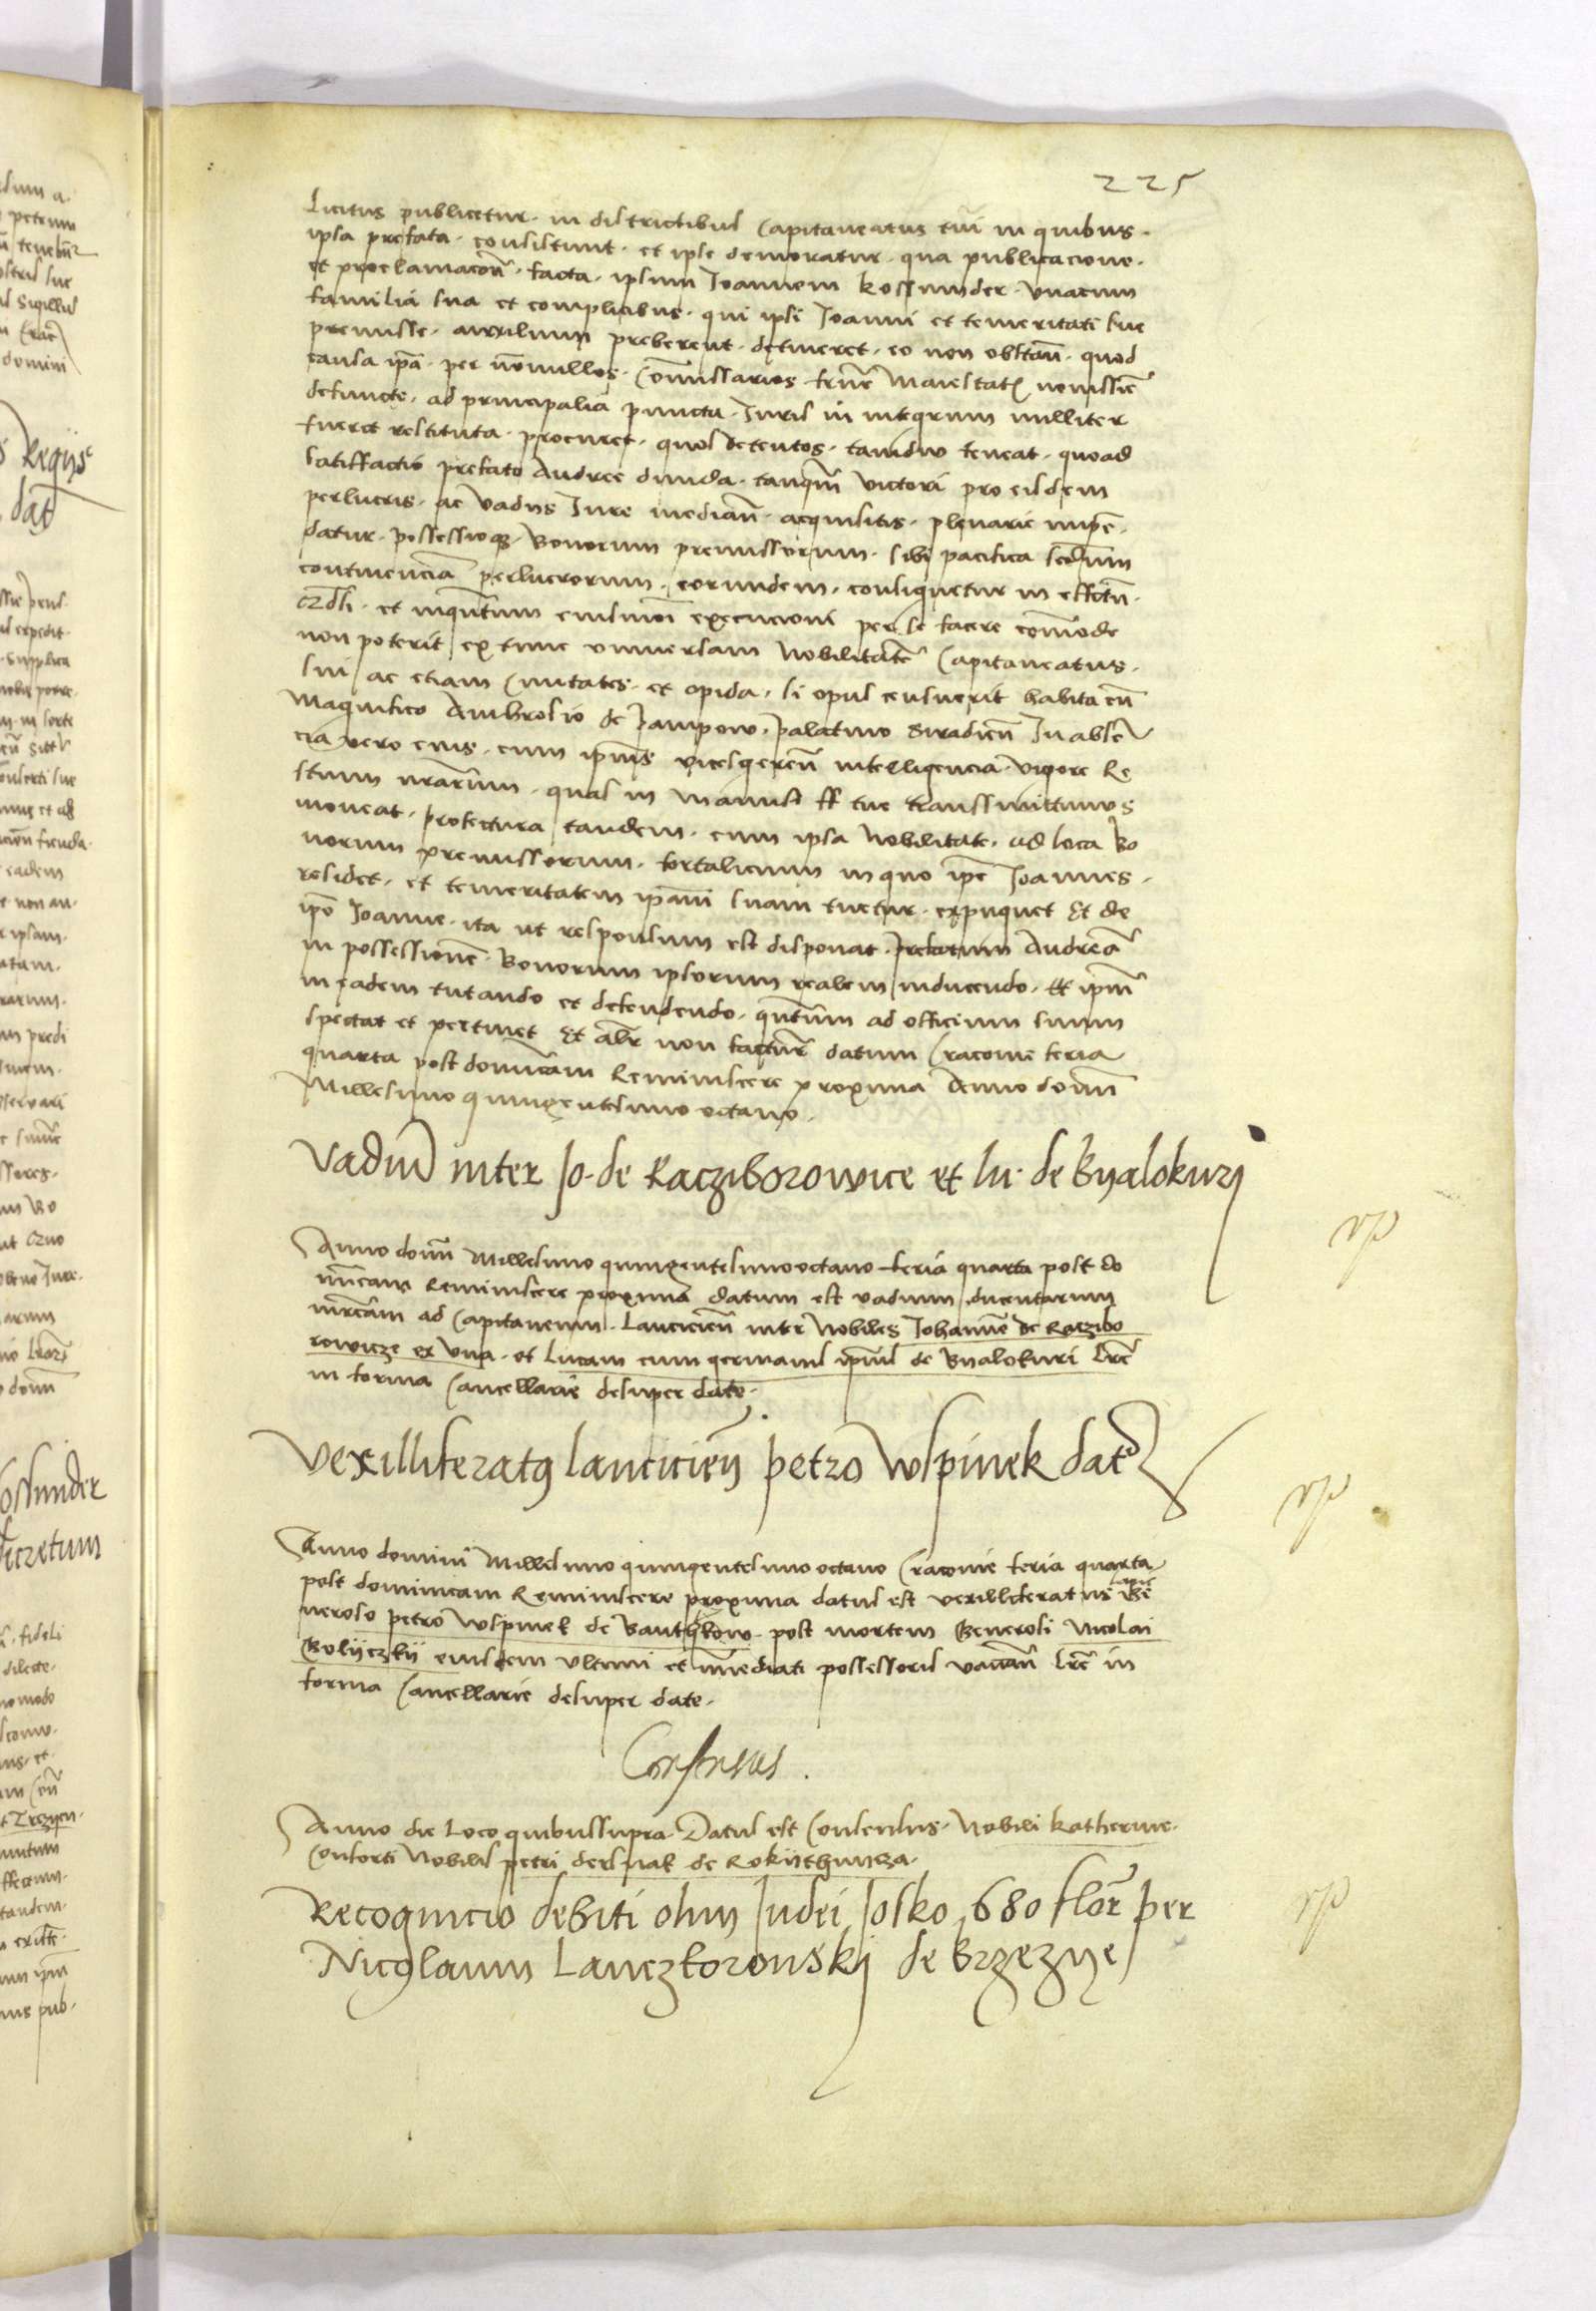 225
licitus publicetur. in districtibus Capitaneatus tui in quibus.
ipsa prefata. consistunt. et ipse demoratur. qua publicacione.
et proclamacoñ. facta. ipsum Joannem kossmider. Vnacum
familia sua et complicibus. qui ipsi Joanni et temeritati sue
premisse. auxilium preberent. detineret. eo non obstañ. quod
causa ip̃a. per nõnullos. Cõmissarios frñe Maiestatς nouissie
defuncte. ad principalia puncta. Juris in integrum nulliter
fuerat restituta. procuret. quos detentos. tamdiu teneat. quoad
satisfactio prefato Andree dunda. tanqm̃ victori pro eisdem
perlucris. ac vadijs Jure mediañ. acquisitis. plenarie impẽ.
datur. possessioqʒ. bonorum premissorum. sibi pacifica scd̃um
continencia perlucrorum. eorundem. consiquetur in effctũ.
czdli. et inqñtum eiusmoi execucioni per se facere cõmode
non poterit ex tunc vniuersam Nobilitatẽ Capitaneatus.
sui ac etiam Ciuitates. et opida. si opus censuerit habita cũ
Magnifico Ambrosio de pampow. palatino Siradieñ In absẽ
cia vero eius. cum ipĩus vicesgereñ intelligencia. vigore Re
stium nrãrum. quas in manus ff tue transmittimus
moueat. profectura tandem. cum ipsa Nobilitate. ad loca bo
norum premissorum. fortalicium in quo ip̃e Joannes.
residet. et temeritatem ipam̃ suam tuetur. expugnet Et de
ip̃o Joanne. ita ut responsum est disponat. prefatum Andreã
in possessionẽ. Bonorum ipsorum realem inducendo. Et ipm̃
in eadem tutando et defendendo. qñtum ad officium suum
spectat et pertinet Et alr̃ non factur̃ datum Cracouie feria
quarta post dominicam Reminiscere proxima Anno domĩ
Millesimo quingentesimo octauo.
Vadiũ inter Jo. de Racziborowice et lu. de Byalokurj
Anno domĩ Millesimo quingentesimo octauo feria quarta post do
minicam Reminiscere proxima datum est vadium ducentarum
mr̃carum ad Capitaneum. Lancicieñ inter Nobiles Johannẽ de Raczibo
rowicze ex vna. et Lucam cum germanis ipĩus de Byalokuri Lr̃e
in forma Cancellarie desuper date.
Vexilliferatꝰ lancicieñ petro wspinek datꝰ
Anno domini Millesimo quingentesimo octauo Cracouie feria quarta
post dominicam Reminiscere proxima datus est vexilliferatus Ge
neroso petro wspinek de Banthkow. post mortem Generosi Nicolai
Bolijczkij eiusdem vltimi et im̃ediati possessoris vacañ Lr̃e in
forma Cancellarie desuper date.
Consensus.
Anno die Loco quibussupra. Datus est Consensus. Nobili Katherine.
Consorti Nobilis petri dersnak de Rokijthnicza.
Recognicio debiti olim Judei Josko 680 flor̃ per
Nicolaum Lanczkoronskj de brzezye